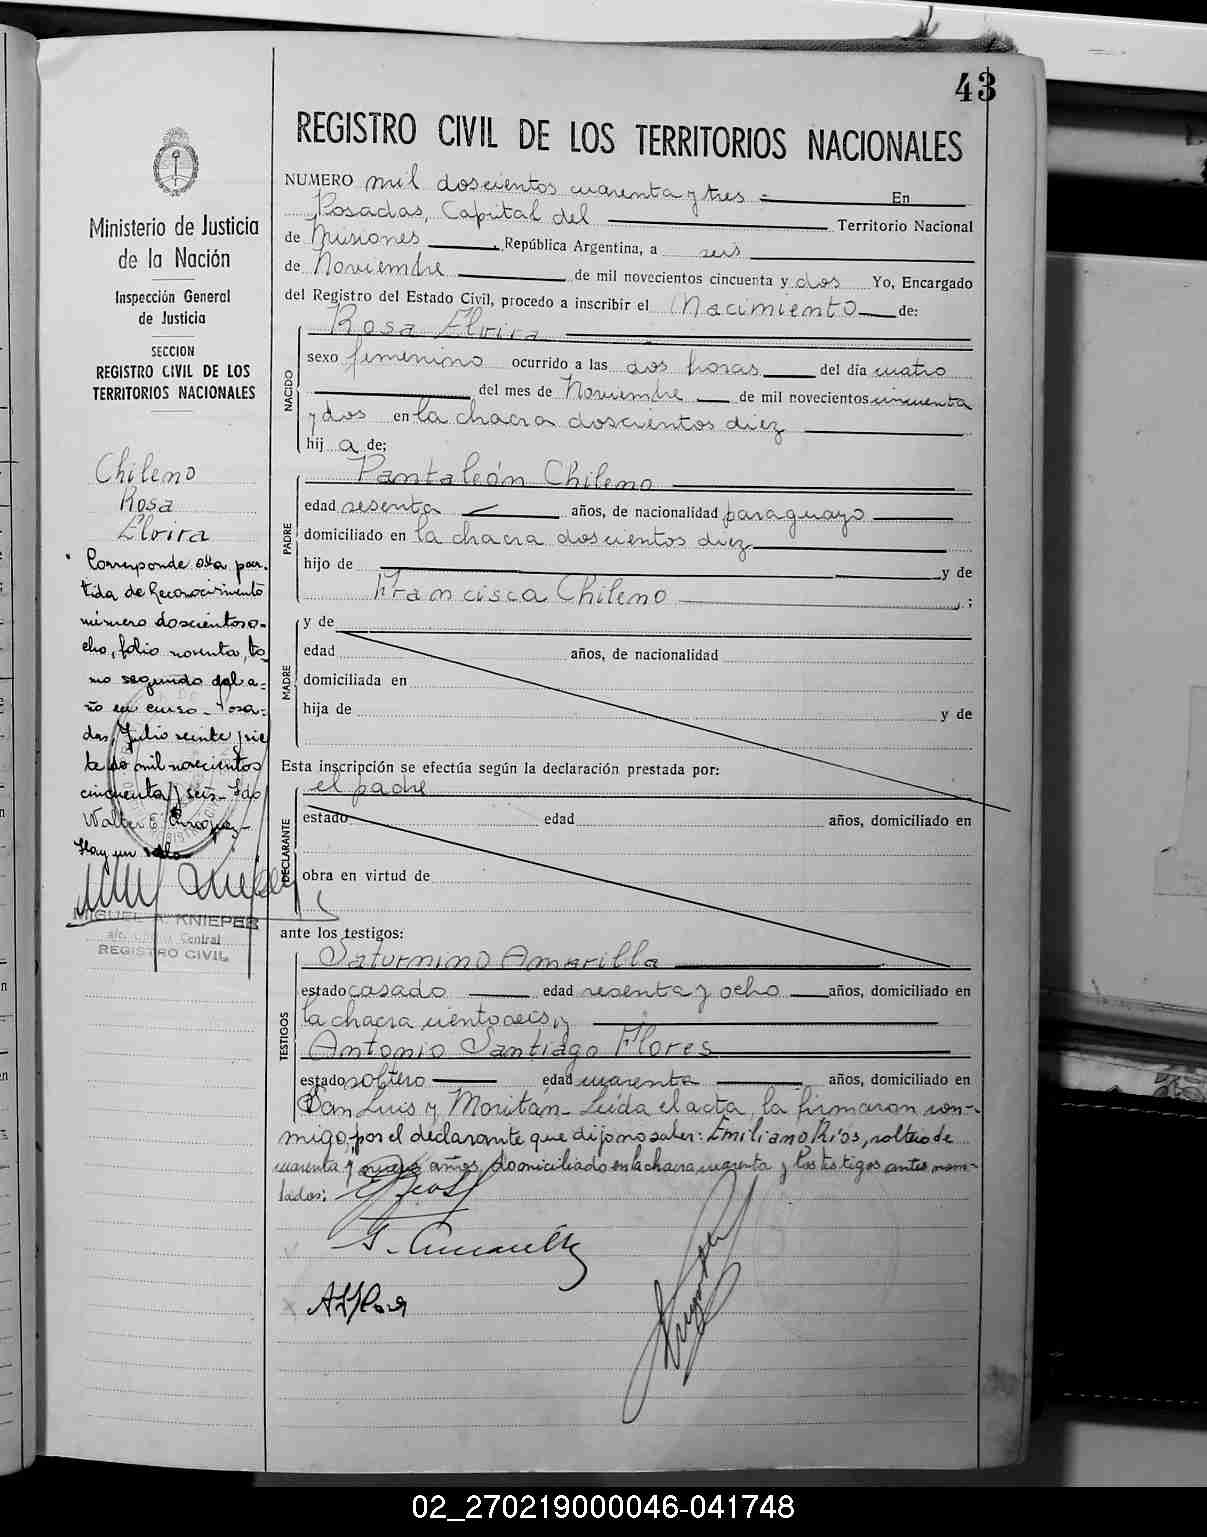 43
REGISTRO CIVIL DE LOS TERRITORIOS NACIONALES
Ministerio de Justicia
de la Nación
Inspección General
de Justicia
SECCION
REGISTRO CIVIL DE LOS
TERRITORIOS NACIONALES
Chileno
Rosa
Elvira
Corresponde a la par-
tida de Reconocimiento
número doscientos o-
cho, folio noventa, to-
mo segundo del a-
ño en curso - Posa-
das, Julio veinte y sie
te de mil novecientos
cincuenta y seis - Fdo
Walter E.
Hay un sello
MIGUEL A. KNIEPER
Central
REGISTRO CIVIL
NUMERO mil doscientos cuarenta y tres En
Posadas, Capital del Territorio Nacional
de Misiones, República Argentina, a seis
de Noviembre de mil novecientos cincuenta y dos Yo, Encargado
del Registro del Estado Civil, procedo a inscribir el Nacimiento de:
NACIDO
Rosa Elvira
sexo femenino ocurrido a las dos horas del día cuatro
del mes de Noviembre de mil novecientos cincuenta
y dos en la chacra doscientos diez
hij a de;
PADRE
Pantaleón Chileno
edad sesenta años, de nacionalidad paraguayo
domiciliado en la chacra doscientos diez
hijo de y de
Francisca Chileno ;
MADRE
y de
edad años, de nacionalidad
domiciliada en
hija de y de
Esta inscripción se efectúa según la declaración prestada por:
DECLARANTE
el padre
estado edad años, domiciliado en
obra en virtud de
ante los testigos:
TESTIGOS
Saturnino Amarilla
estado casado edad sesenta y ocho años, domiciliado en
la chacra ciento seis, y
Antonio Santiago Flores
estado soltero edad cuarenta años, domiciliado en
San Luis y Moritán - Leída el acta, la firmaron con-
migo, por el declarante que dijo no saber: Emiliano Ríos, soltero de
cuarenta y nueve años, domiciliado en la chacra cuarenta y los testigos antes nom-
brados:
S. Amarilla
02_270219000046-041748